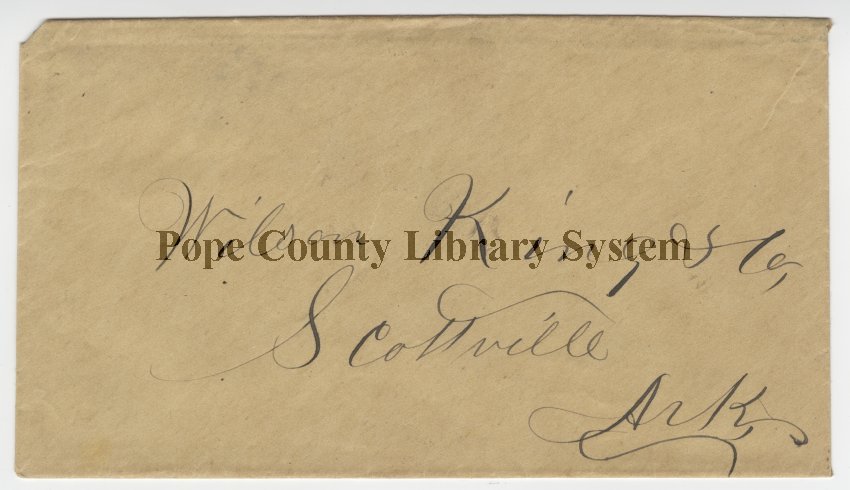 Wilson King & Co,
Pope County Library System
Scottville
Ark,